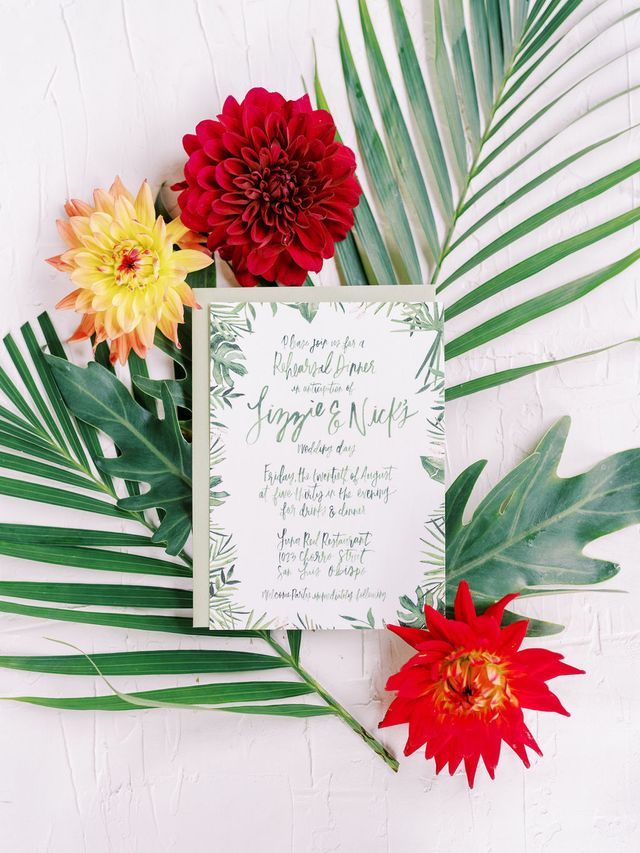 Please join us for a
Rehearsal Dinner
in anticipation of
Lizzie & Nick's
wedding day
Friday, the twentieth of August
at five thirty in the evening
for drinks & dinner
Luna Red Restaurant
1023 Chorro Street
San Luis Obispo
Welcome Parties immediately following